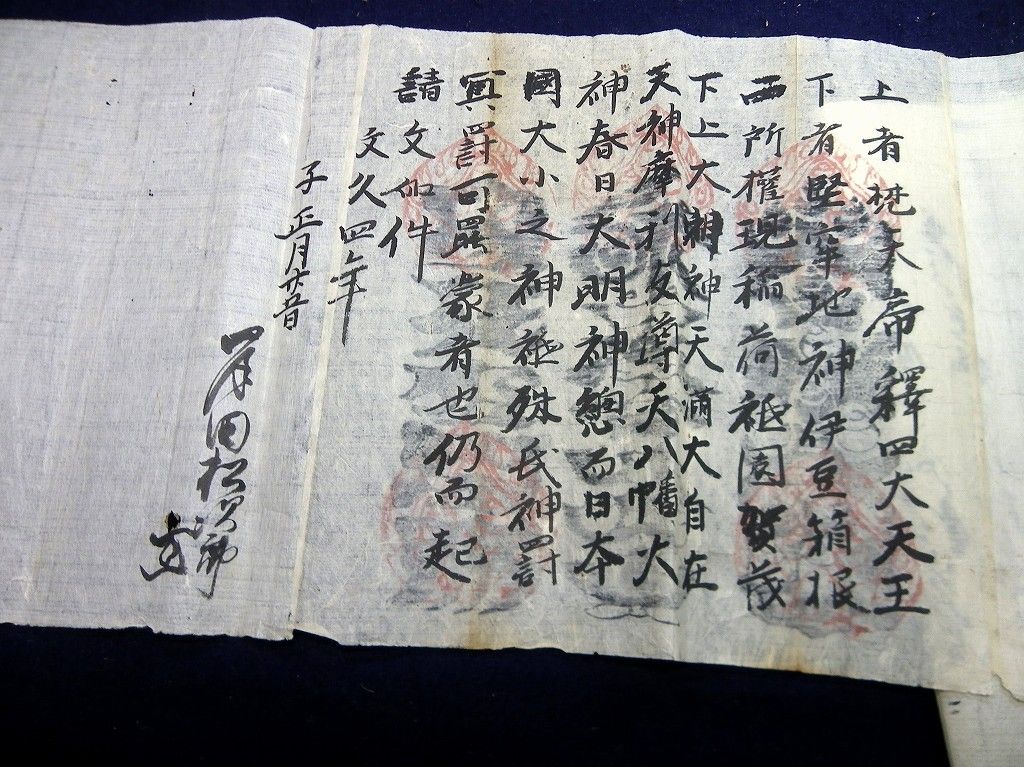 上者梵天帝釋四大天王
下者堅牢地神伊豆箱根
両所權現稲荷祗園賀茂
下上大明神天満大自在
天神摩利支尊天八幡大
神春日大明神總而日本
國大小之神祗殊氏神罰
冥罰可罷蒙者也仍而起
請文如件
文久四年
子正月廿五日
田松